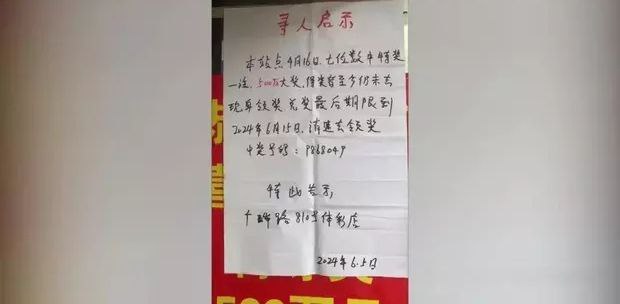 寻人启示
本站点4月16日,七位数中特奖
一注,500万大奖,得奖者至今仍未去
现单领奖 兑奖最后期限到
2024年6月15日,请速去领奖
中奖号码:9868049
特此启示
路810号体彩店
2024年6.5日